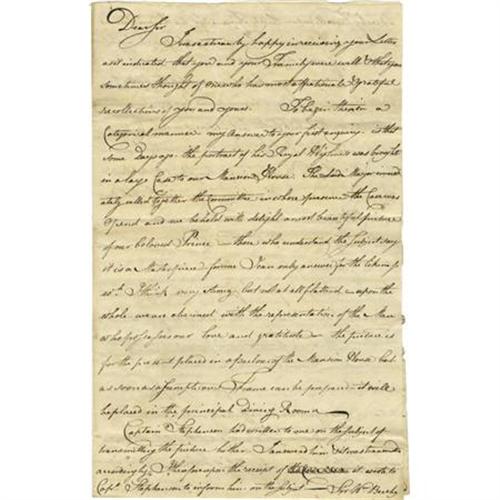 Dear Sir
I was extremely happy in receiving your Letter
as it indicated that you and your Family were well & that you
sometimes thought of one who has most affectionate & grateful
recollections of you and yours. To begin then in a
Categorical manner my Answer to your first enquiry is that
some Days ago the portrait of his Royal Highness was brought
in a large Case to our Mansion House. The Lord Mayor immed
iately called together the Committee in whose presence the Case was
Opened and we beheld with delight a most beautiful picture
of our beloved Prince those who understand the subject say
it is a Masterpiece for me I can only answer for the likeness
I think very strong but not at all flattered upon the
whole we are charmed with the representation of the Man
who possesses our love and gratitude the picture is
for the present placed in a parlour of the Mansion House but
as soon as a sumptuous Frame can be prepared it will
be placed in the principal Dining Room
Captain Stephenson had written to me on the subject of
transmitting the picture hither I answered him & it was transmitted
accordingly & thereupon upon the receipt of it wrote to
Capt Stephenson to inform him on the subject Sir Wm